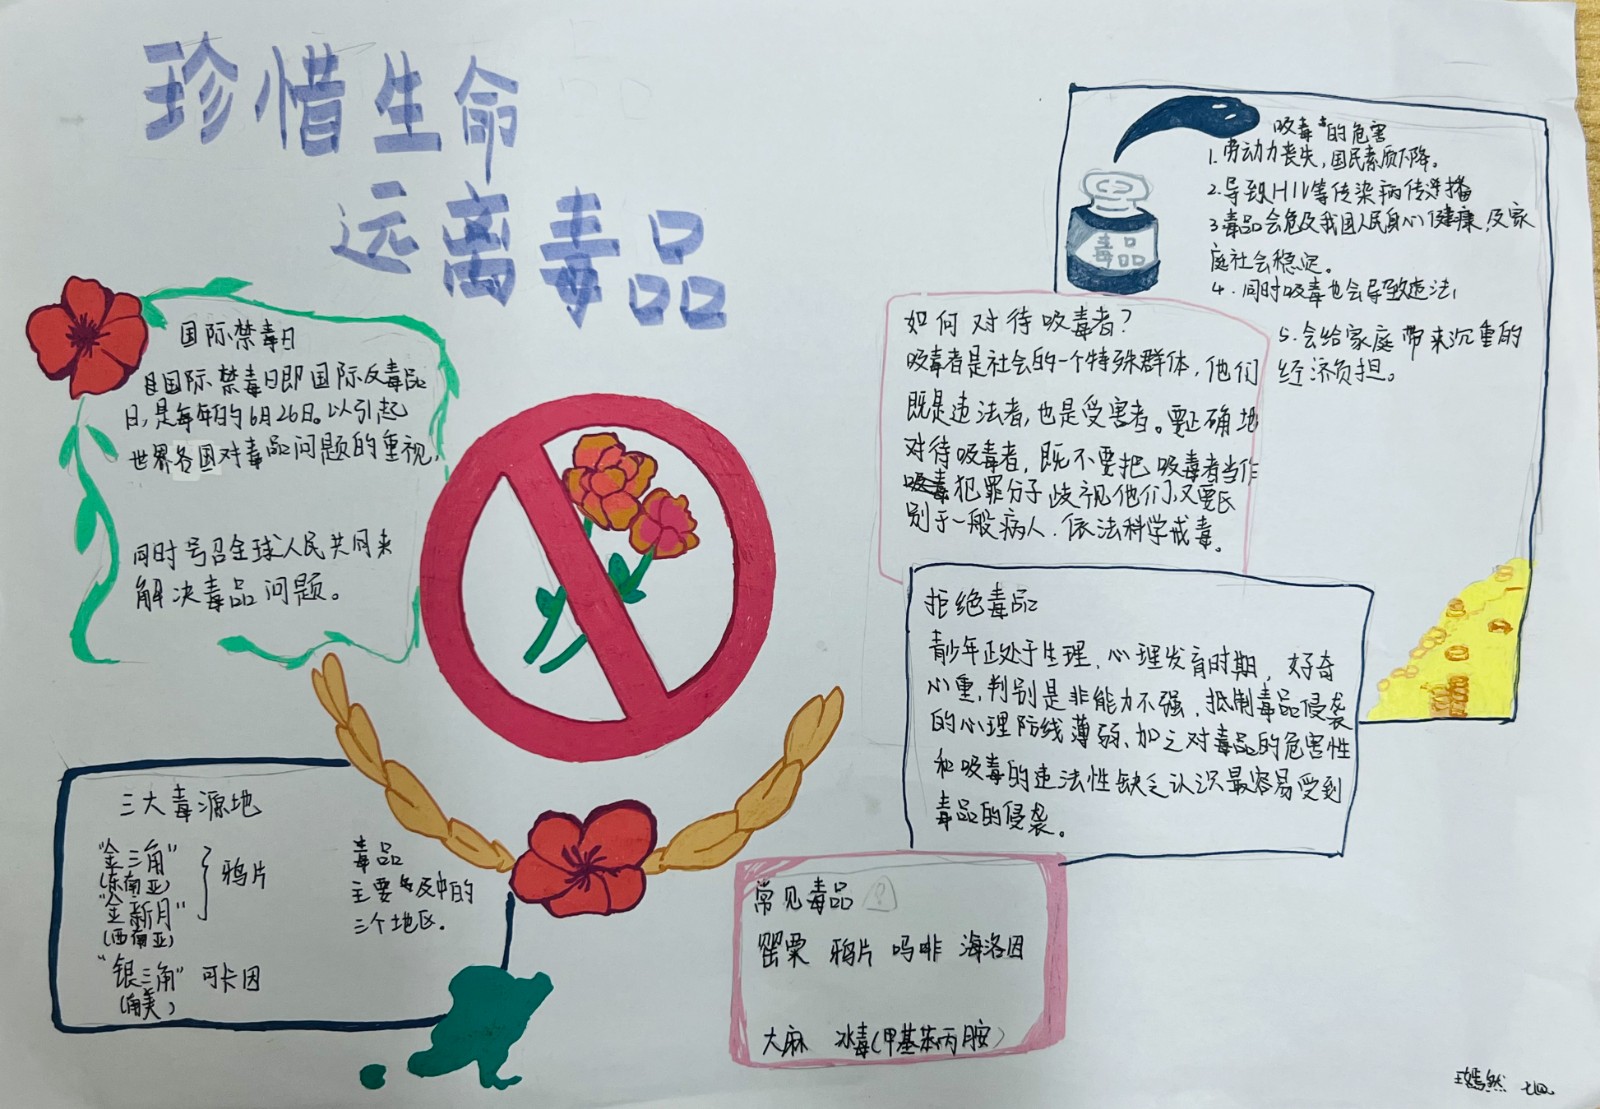 珍惜生命
远离毒品
国际禁毒日
国际禁毒日即国际反毒品
日,是每年的6月26日。以引起
世界各国对毒品问题的重视.
同时号召全球人民共同来
解决毒品问题。
三大毒源地
"金三角"
(东南亚)
"金新月"
(西南亚)
鸦片
"银三角" 可卡因
(南美)
毒品
主要集中的
三个地区.
吸毒的危害
1.劳动力丧失,国民素质下降。
2.导致HIV等传染病传播
3毒品会危及我国人民身心健康,及家
庭社会稳定。
4.同时吸毒也会导致违法,
5.会给家庭带来沉重的
经济负担。
毒品
如何对待吸毒者?
吸毒者是社会的一个特殊群体,他们
既是违法者,也是受害者。要正确地
对待吸毒者,既不要把吸毒者当作
犯罪分子歧视他们,又要区
别于一般病人.依法科学戒毒。
拒绝毒品
青少年正处于生理、心理发育时期,好奇
心重,判别是非能力不强,抵制毒品侵袭
的心理防线薄弱、加之对毒品的危害性
和吸毒的违法性缺乏认识最容易受到
毒品的侵袭。
常见毒品
罂粟 鸦片 吗啡 海洛因
大麻 冰毒(甲基苯丙胺)